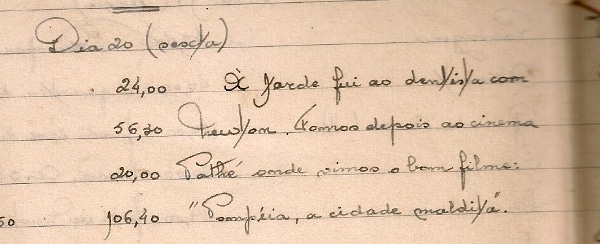 Dia 20 (sexta)
24,00 À tarde fui ao dentista com
56,30 Newton. Fomos depois ao cinema
20,00 Pathé onde vimos o bom filme:
50 106,40 "Pompéia, a cidade maldita".